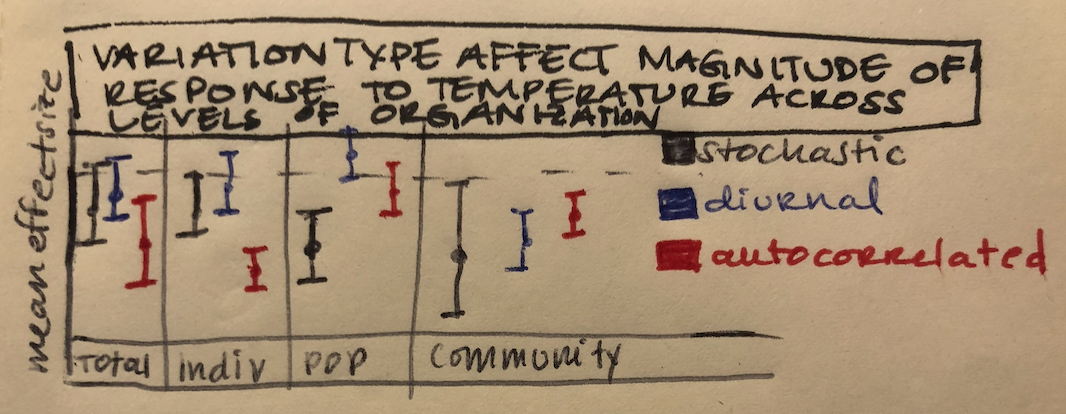 VARIATION TYPE AFFECT MAGNITUDE OF
RESPONSE TO TEMPERATURE ACROSS
LEVELS OF ORGANIZATION
mean effect size
stochastic
diurnal
autocorrelated
Total
indiv
pop
community